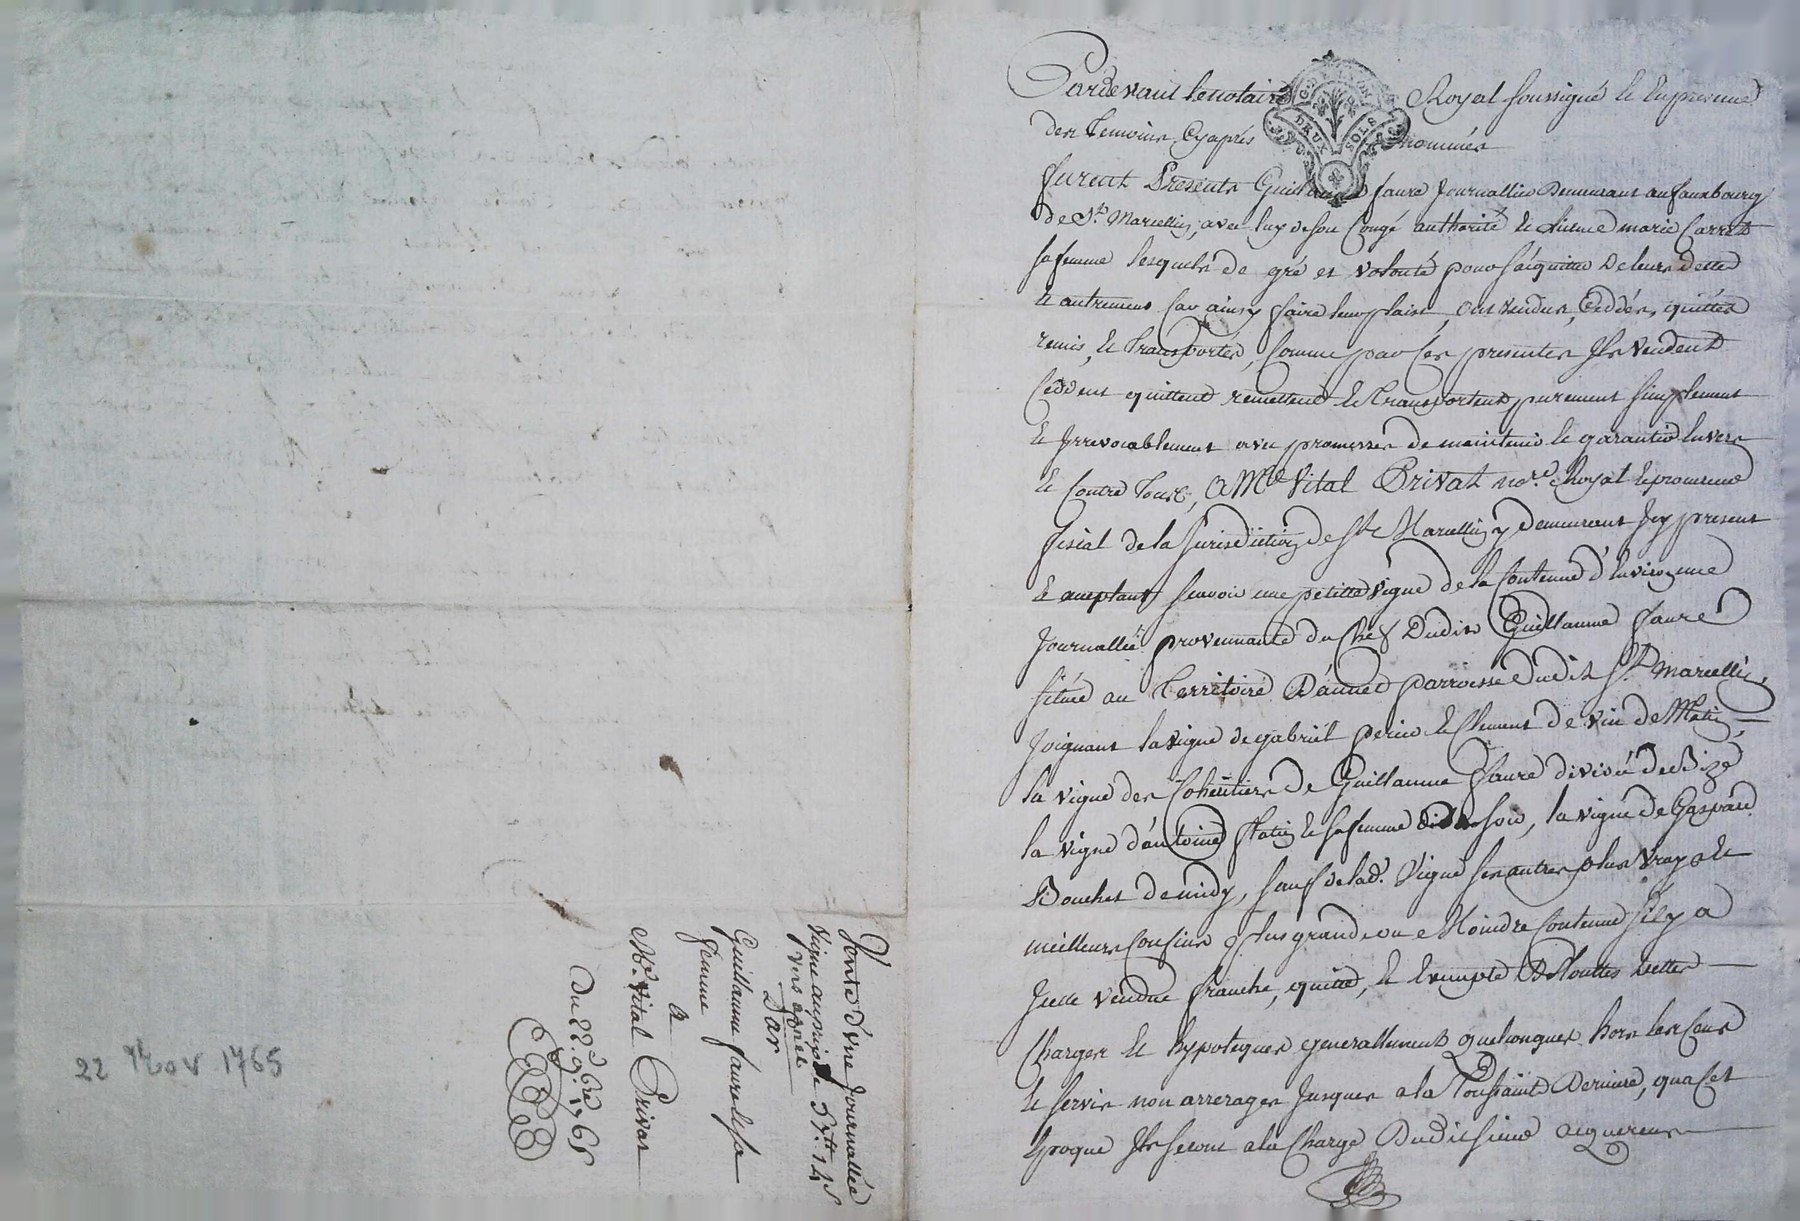 Pardevant le notaire Royal soussigné et en presence
des temoins cyaprés nommés
GEN LYON
DEUX SOLS
furent Presents Guillaume faure journallier Demeurant au fauxbourg
de St. Marcellin, avec luy de son Congé authorité et licence marie Carret
sa femme lesquels de gré et volonté pour s'aiquitter de leurs dettes
et autrement car ainsy faire leur plait, ont vendus, Ceddés, quittés
remis, et transportés, comme par ces presentes Ils vendent
Ceddent quittent remettent et transportent purement simplement
et Irrevocablement avec promesses de maintenir et garantir envers
et contre tous, a Me Vital Privat nore. Royal et procureur
fiscal de la Jurisdiction de St. Marcellin y demeurant Icy present
et acceptant scavoir une petitte vigne de la Contenue d'environ une
Journallée provennante du Chef Dudit Guillaume faure
située au territoire D'annet parroisse dudit St. Marcellin,
Joignant la vigne de gabriël perier de Matin
la vigne des Cohéritiers de Guillaume faure divisée de Bize
la vigne d'antoine et sa femme de soir, la vigne de Gaspard
Bouchet de midy, sauf de lad. vigne ses autres plus vrays et
meilleurs Confins plus grande ou Moindre Contenue s'il y a
Icelle vendue franche, quitte, et Exempte De touttes dettes
Charges et hypoteques generallement quelconques hors les Cens
et servis non arreragés Jusques a la Toussaint Derniere, qua Cet
Epoque Ils seront a la Charge Dudit sieur acquereur
Vente d'une journallée
vigne au prix de 57# 14s
vers annet
Par
Guillaume faure et sa
femme
a
Me. Vital Privat
Du 22e. 9bre 1765
22 Nov 1765